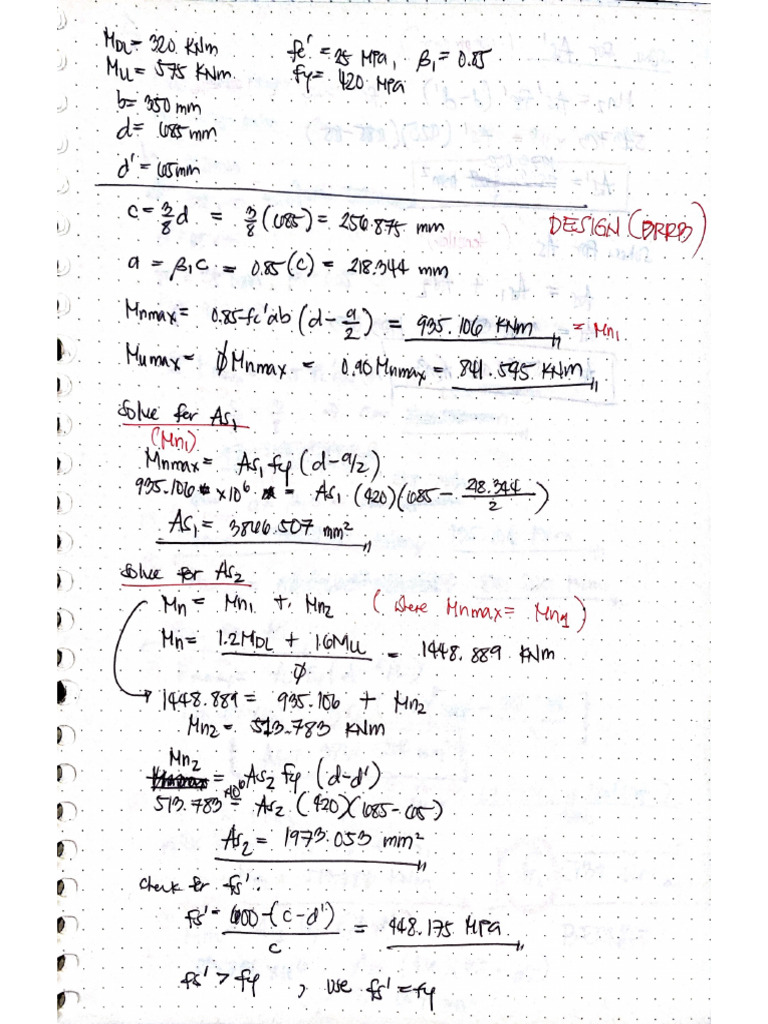 M_DL = 320 KNm
fc' = 25 MPa, β₁ = 0.85
M_LL = 575 KNm
fy = 420 MPa
b = 350 mm
d = 685 mm
d' = 65 mm
c = 3/8 d = 3/8 (685) = 256.875 mm
DESIGN (DRRB)
a = β₁c = 0.85 (c) = 218.344 mm
Mnmax = 0.85fc'ab (d - a/2) = 935.106 KNm = Mn₁
Mumax = ϕMnmax = 0.90 Mnmax = 841.595 KNm
Solve for As₁
(Mn₁)
Mnmax = As₁ fy (d - a/2)
935.106 x10⁶ = As₁ (420)(685 - 218.344/2)
As₁ = 3866.507 mm²
Solve for As₂
Mn = Mn₁ + Mn₂ (where Mnmax = Mn₁)
Mn = 1.2M_DL + 1.6M_LL / ϕ = 1448.889 KNm
1448.889 = 935.106 + Mn₂
Mn₂ = 513.783 KNm
Mn₂ = As₂ fy (d-d')
513.783 x10⁶ = As₂ (420)(685-65)
As₂ = 1973.053 mm²
Check for fs':
fs' = 600-(c-d') / c = 448.175 MPa
fs' > fy , use fs' = fy